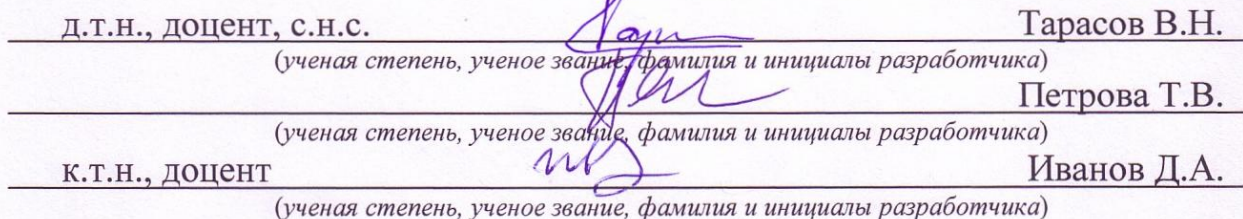 д.т.н., доцент, с.н.с. Тарасов В.Н.
(ученая степень, ученое звание, фамилия и инициалы разработчика)
Петрова Т.В.
(ученая степень, ученое звание, фамилия и инициалы разработчика)
к.т.н., доцент Иванов Д.А.
(ученая степень, ученое звание, фамилия и инициалы разработчика)